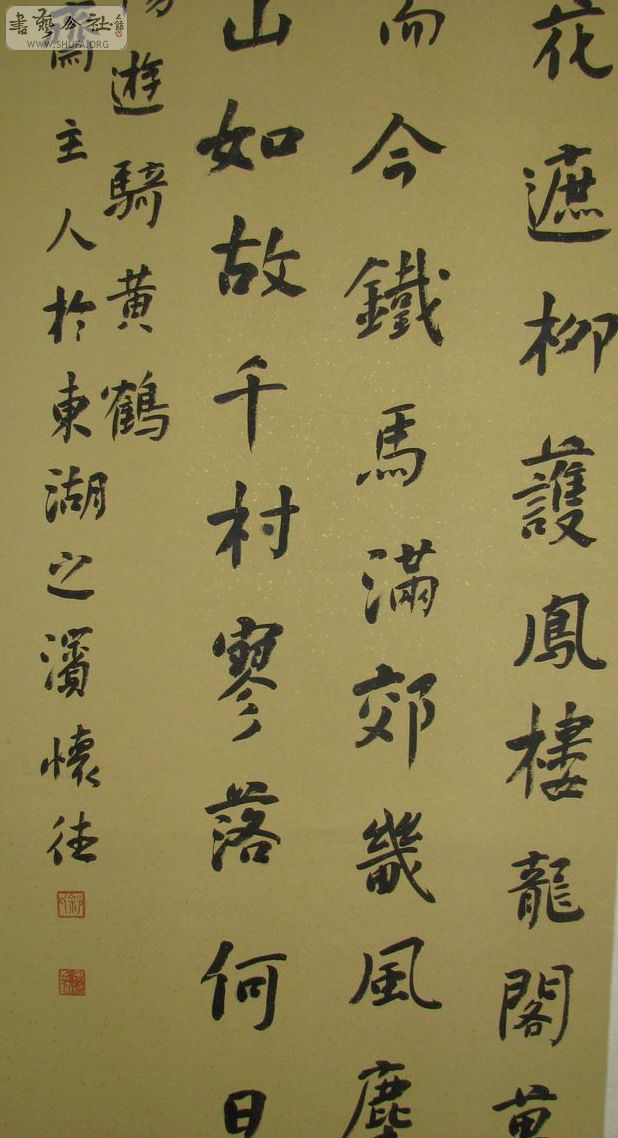 花遮柳護鳳樓龍閣萬
而今鐵馬滿郊畿風塵
山如故千村寥落何日
遊騎黃鶴
主人於東湖之濱懷往
書藝公社
WWW.SHUFA.ORG